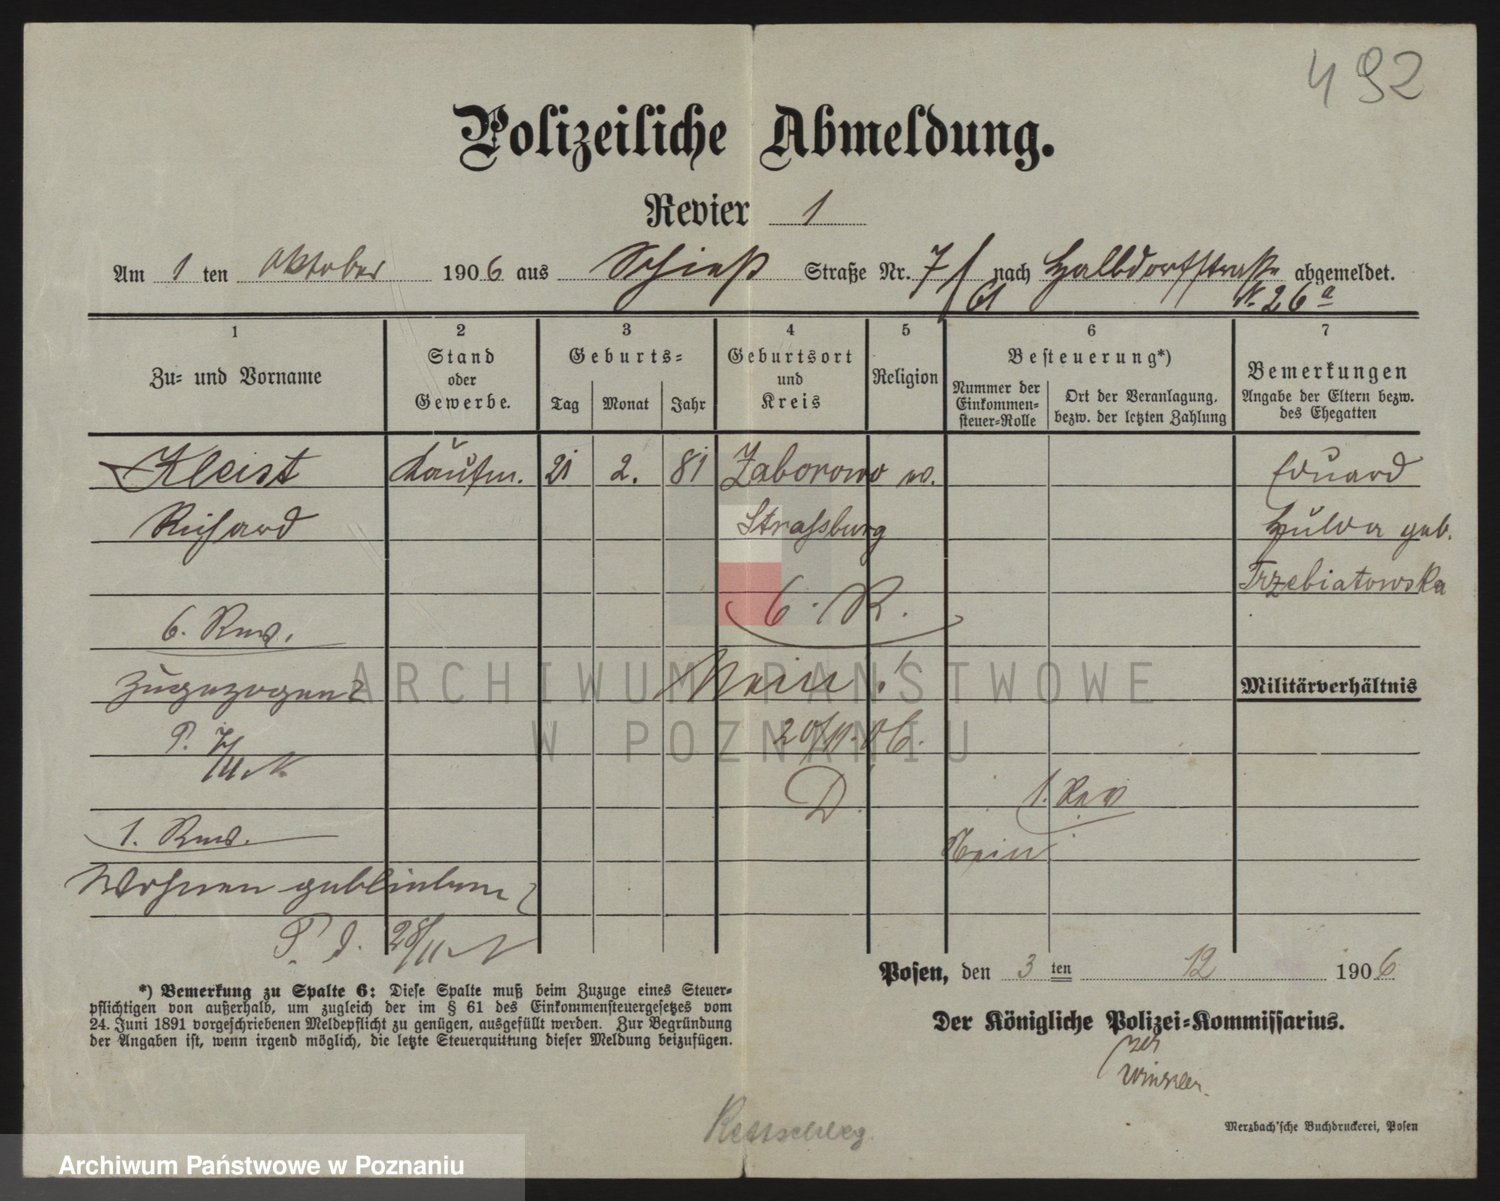 492
Polizeiliche Abmeldung.
Revier 1
Am 1 ten Oktober 1906 aus Schieß Straße Nr. 7/61 nach Halbdorfstraße abgemeldet.
N. 26 a
1 2 3 4 5 6 7
Zu- und Vorname
Stand oder Gewerbe.
Geburts-
Tag Monat Jahr
Geburtsort und Kreis
Religion
Besteuerung*)
Nummer der Einkommen-steuer-Rolle
Ort der Veranlagung, bezw. der letzten Zahlung
Bemerkungen
Angabe der Eltern bezw. des Ehegatten
Kleist Kaufm. 21 2. 81 Zaborowo w. Eduard
Richard Straßburg Hulda geb.
Trzebiatowska
6. R.
6. Rev.
Zugezogen? Nein!
Militärverhältnis
20/11. 06.
D.
1. Rev
1. Rev.
Nein
Wohnen geblieben?
P. J. 28/11
Posen, den 3 ten 12 1906
*) Bemerkung zu Spalte 6: Diese Spalte muß beim Zuzuge eines Steuer-
pflichtigen von außerhalb, um zugleich der im § 61 des Einkommensteuergesetzes vom
24. Juni 1891 vorgeschriebenen Meldepflicht zu genügen, ausgefüllt werden. Zur Begründung
der Angaben ist, wenn irgend möglich, die letzte Steuerquittung dieser Meldung beizufügen.
Der Königliche Polizei-Kommissarius.
Merzbach'sche Buchdruckerei, Posen
ARCHIWUM PAŃSTWOWE
W POZNANIU
Archiwum Państwowe w Poznaniu